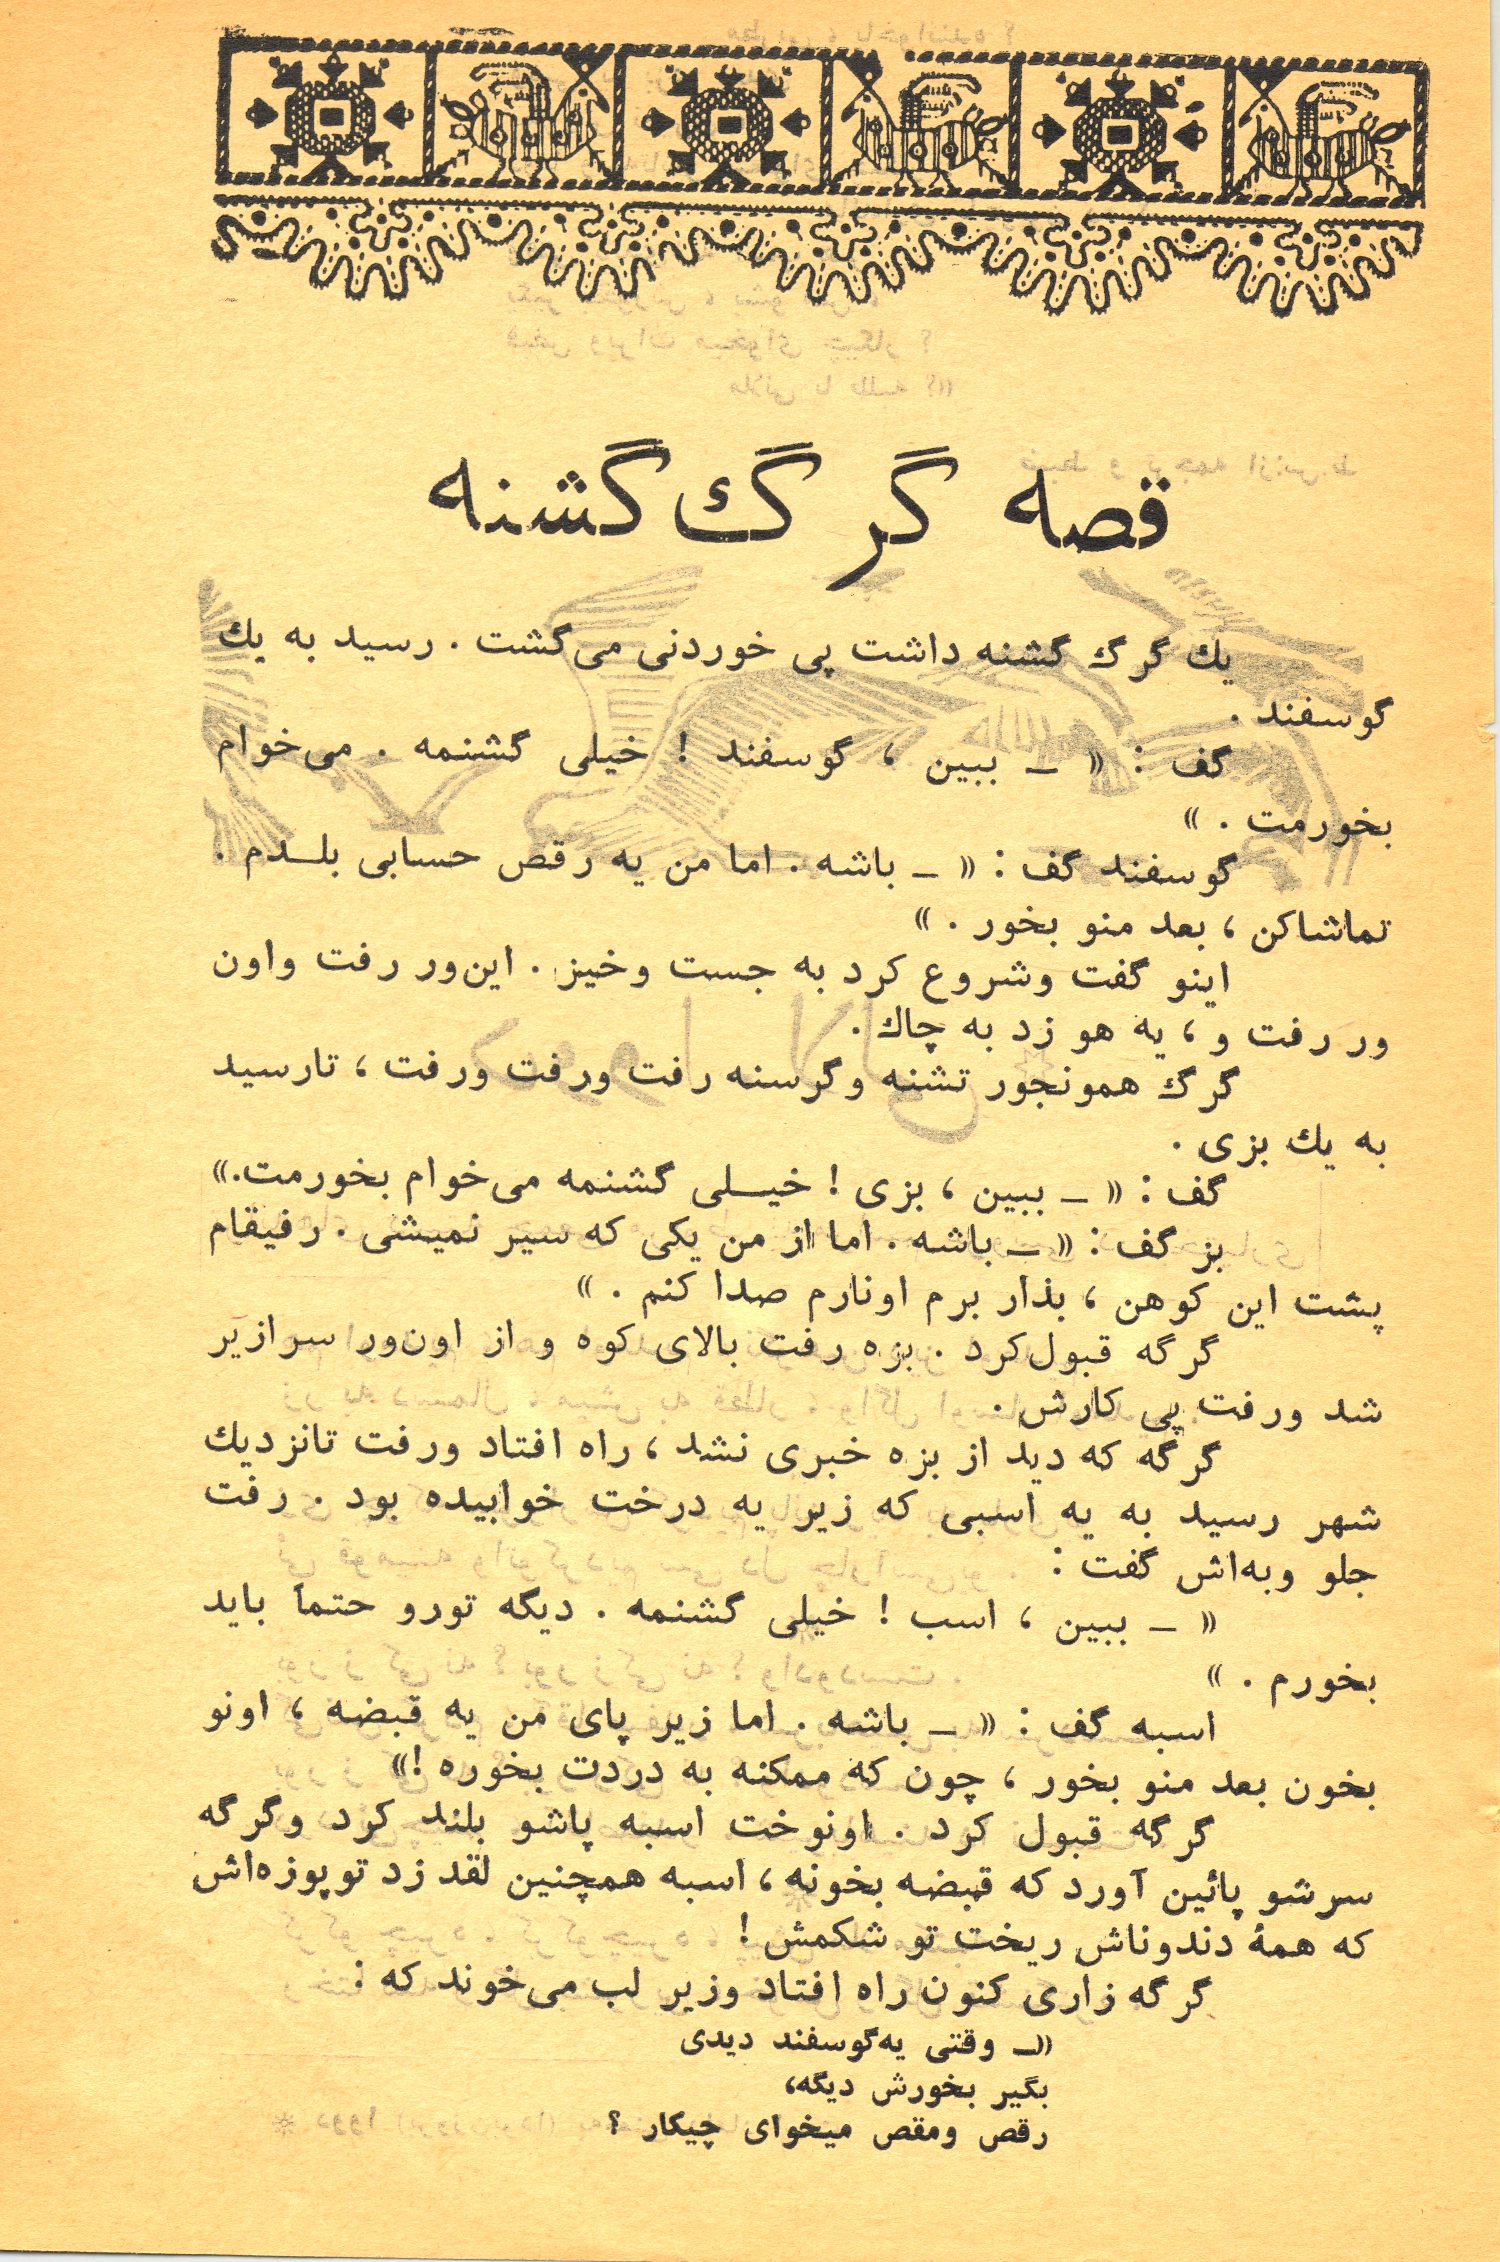 قصه گرگ گشنه
یك گرگ گشنه داشت پی خوردنی می‌گشت . رسید به یك
گوسفند .
گف : « ــ ببین ، گوسفند ! خیلی گشنمه . می‌خوام
بخورمت . »
گوسفند گف : « ــ باشه . اما من یه رقص حسابی بلــدم .
تماشاكن ، بعد منو بخور . »
اینو گفت وشروع كرد به جست وخیز . این‌ور رفت واون
ور رفت و ، یه هو زد به چاك .
گرگ همونجور تشنه وگرسنه رفت ورفت ورفت ، تارسید
به یك بزی .
گف : « ــ ببین ، بزی ! خیــلی گشنمه می‌خوام بخورمت.»
بز گف : « ــ باشه . اما از من یكی كه سیر نمیشی . رفیقام
پشت این كوهن ، بذار برم اونارم صدا كنم . »
گرگه قبول‌كرد . بزه رفت بالای كوه و از اون‌ور سرازیر
شد ورفت پی كارش .
گرگه كه دید از بزه خبری نشد ، راه افتاد ورفت تانزدیك
شهر رسید به یه اسبی كه زیر یه درخت خوابیده بود . رفت
جلو وبه‌اش گفت :
« ــ ببین ، اسب ! خیلی گشنمه . دیگه تورو حتماً باید
بخورم . »
اسبه گف : « ــ باشه . اما زیر پای من یه قبضه ، اونو
بخون بعد منو بخور ، چون كه ممكنه به دردت بخوره !»
گرگه قبول كرد . اونوخت اسبه پاشو بلند كرد وگرگه
سرشو پائین آورد كه قبضه بخونه ، اسبه همچنین لقد زد توپوزه‌اش
كه همهٔ دندوناش ریخت تو شكمش !
گرگه زاری كنون راه افتاد وزیر لب می‌خوند كه :
«ــ وقتی یه‌گوسفند دیدی
بگیر بخورش دیگه،
رقص ومقص میخوای چیكار ؟